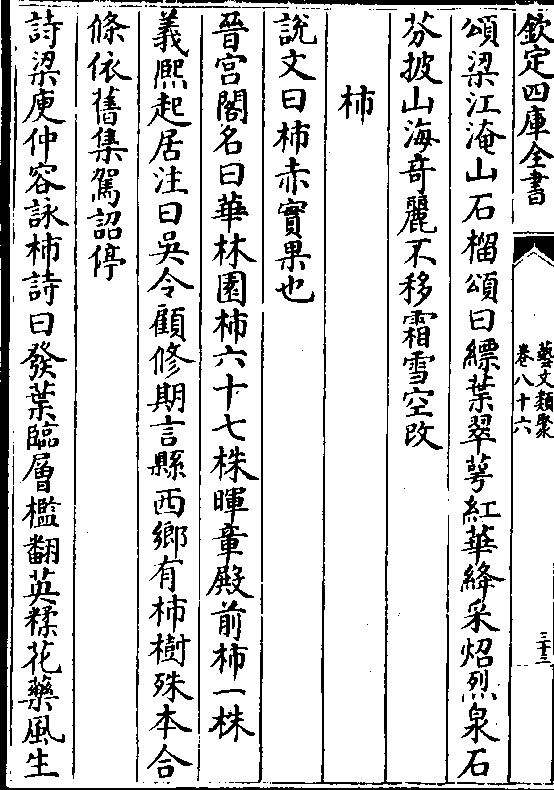 欽定四庫全書
藝文類聚
卷八十六
三十三
頌梁江淹山石榴頌曰縹葉翠萼紅華絳采炤烈泉石
芬披山海奇麗不移霜雪空改
柿
說文曰柿赤實果也
晉宫閣名曰華林園柿六十七株暉章殿前柿一株
義熙起居注曰吳令顧修期言縣西鄉有柿樹殊本合
條依舊集駕詔停
詩梁庾仲容詠柿詩曰發葉臨層檻翻英糅花藥風生